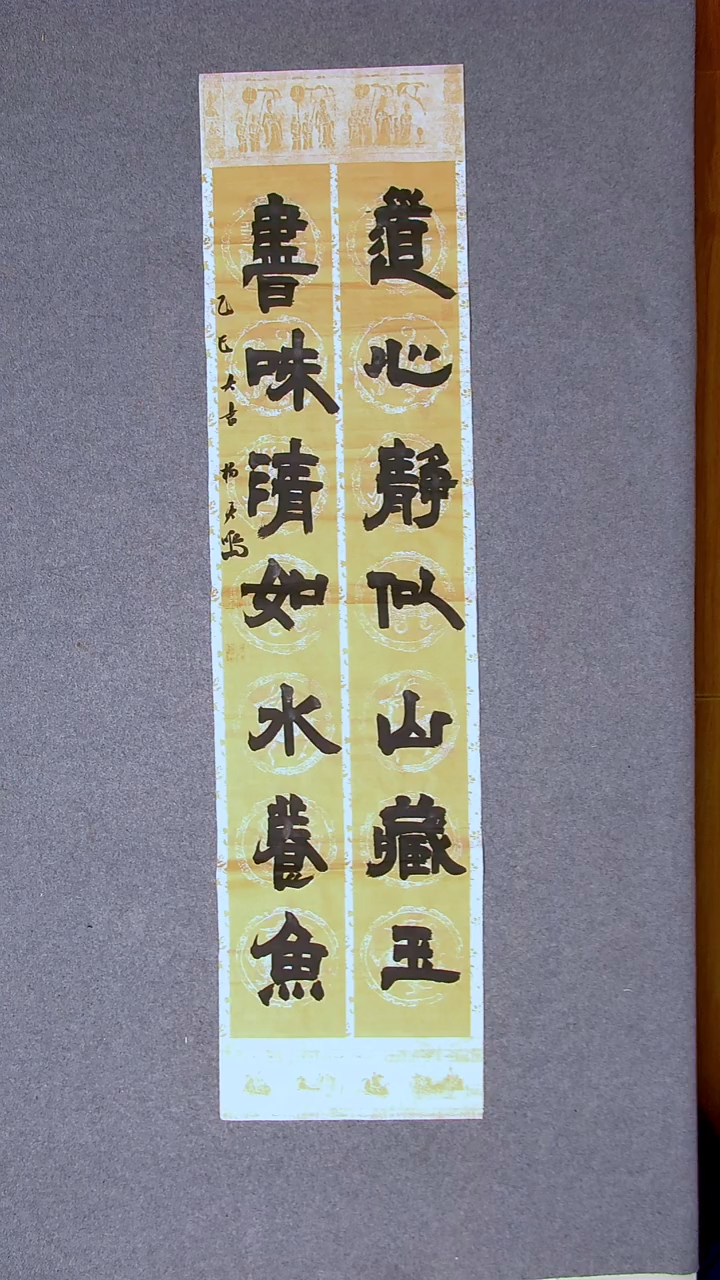 道心静似山藏玉
書味清如水養魚
乙巳大吉 楊